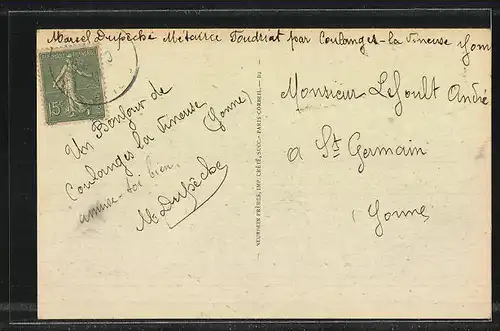 Marcel Dupêche Métairie Toudriat par Coulanges-la Vineuse Yonne
15c
Un Bonjour de
Coulanges la Vineuse
(Yonne)
amuse-toi bien.
M Dupêche
NEURDEIN FRÈRES, IMP. CRÉTÉ, SUCC. - PARIS-CORBEIL. -
Monsieur André
a St Germain
Yonne